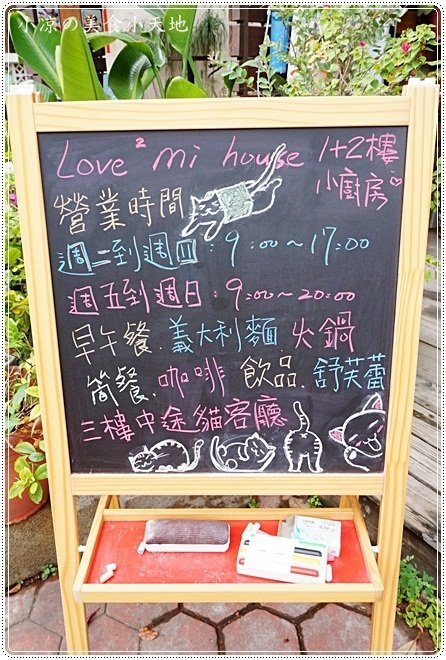 小涼の美食小天地
Love² mi house 1+2樓
小廚房
營業時間
週二到週四：9:00~17:00
週五到週日：9:00~20:00
早午餐.義大利麵 火鍋
簡餐.咖啡 飲品.舒芙蕾
三樓中途貓客廳